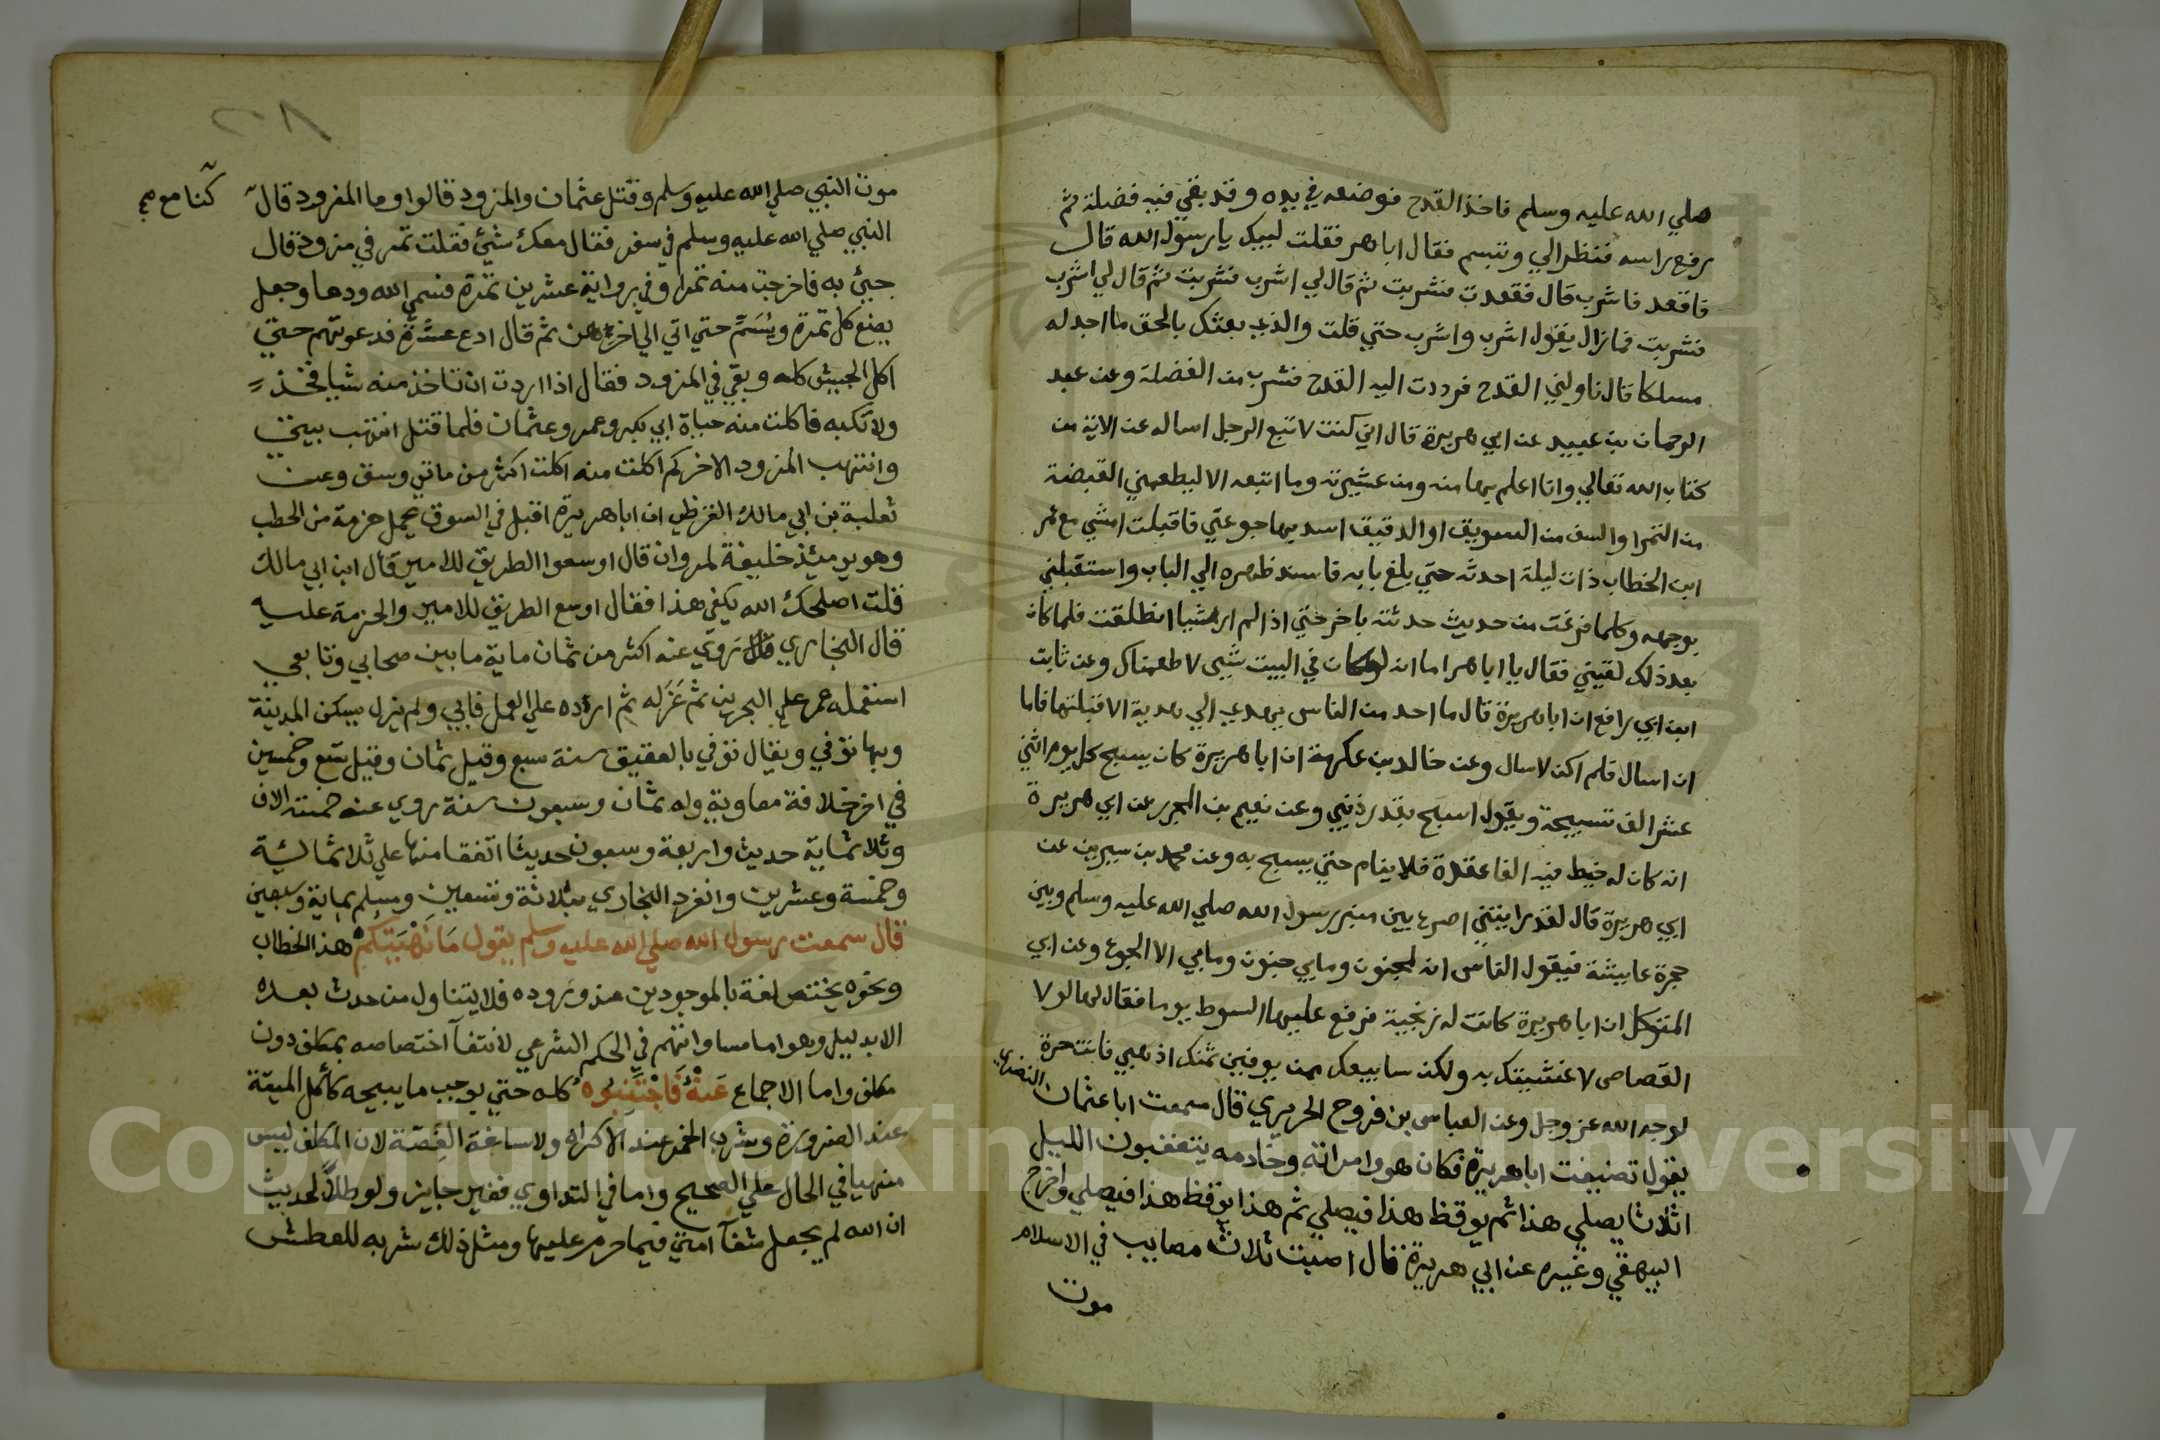 صلي الله عليه وسلم فاخذ القدح فوضعه في يده وقد بقي فيه فضلة ثم
رفع راسه فنظر الي وتبسم فقال اباهر فقلت لبيك يا رسول الله قال
فاقعد فاشرب قال فقعدت فشربت ثم قال لي اشرب فشربت ثم قال لي اشرب
فشربت فما زال يقول اشرب واشرب حتي قلت والذي بعثك بالحق ما اجد له
مسلكا قال ناولني القدح فرددت اليه القدح فشرب من الفضلة وعن عبد
الرحمان بن عبيد عن ابي هريرة قال اني كنت لاتبع الرجل اساله عن الاية من
كتاب الله تعالي وانا اعلم بها منه ومن عشيرته وما اتبعه الا ليطعمني القبضة
من التمر او السف من السويق او الدقيق اسد بها جوعتي فاقبلت امشي مع عمر
ابن الخطاب ذات ليلة احدثه حتي بلغ بابه فاسند ظهره الي الباب واستقبلني
بوجهه وكلما فرغت من حديث حدثته باخر حتي اذا لم ار شيا انطلقت فلما كان
بعد ذلك لقيني فقال يا اباهر اما انه لو كان في البيت شيى لاطعمناك وعن ثابت
ابن ابي رافع ان اباهريرة قال ما احد من الناس يهدي الي هدية الا قبلتها فاما
ان اسال فلم اكن لاسال وعن خالد بن عكرمة ان اباهريرة كان يسبح كل يوم اثني
عشر الف تسبيحة ويقول اسبح بقدر ذنبي وعن نعيم بن المحرر عن ابي هريرة
انه كان له خيط فيه الفا عقدة فلا ينام حتي يسبح به وعن محمد بن سيرين عن
ابي هريرة قال لقد رايتني اصرع بين منبر رسول الله صلي الله عليه وسلم وبين
حجرة عايشة فيقول الناس انه لمجنون وما بي جنون وما بي الا الجوع وعن ابي
المتوكل ان اباهريرة كانت له زنجية فرفع عليها السوط يوما فقال لها لولا
القصاص لاغشيتك به ولكن سابيعك ممن يوفيني ثمنك اذهبي فانت حرة
لوجه الله عز وجل وعن العباس بن فروح الحريري قال سمعت اباعثمان النهدي
يقول تضيفت اباهريرة فكان هو وامراته وخادمه يتعقبون الليل
اثلاثا يصلي هذا ثم يوقظ هذا فيصلي ثم هذا يوقظ هذا فيصلي واخرج
البيهقي وغيره عن ابي هريرة قال اصبت ثلاث مصايب في الاسلام
موت
موت النبي صلي الله عليه وسلم وقتل عثمان والمزود قالوا وما المزود قال كنا مع
النبي صلي الله عليه وسلم في سفر فقال معك شئ فقلت تمر في مزود قال
جئ به فاخرجت منه تمرا وفي رواية عشرين تمرة فسمي الله ودعا وجعل
يضع كل تمرة ويسم حتي اتي الي اخرهن ثم قال ادع عشرة فدعوتهم حتي
اكل الجيش كله وبقي في المزود فقال اذا اردت ان تاخذ منه شيا فخذ
ولا تكبه فاكلت منه حياة ابي بكر وعمر وعثمان فلما قتل انتهب بيتي
وانتهب المزود الا اخبركم كم اكلت منه اكلت اكثر من ماتي وسق وعن
ثعلبة بن ابي مالك القرظي ان اباهريرة اقبل في السوق يحمل حزمة من الحطب
وهو يوميئذ خليفة لمروان قال اوسعوا الطريق للامير قال ابن ابي مالك
قلت اصلحك الله يكفي هذا فقال اوسع الطريق للامير والحزمة عليه
قال البخاري روي عنه اكثر من ثمان ماية ما بين صحابي وتابعي
استعمله عمر علي البحرين ثم عزله ثم اراده علي العمل فابي ولم يزل يسكن المدينة
وبها توفي ويقال توفي بالعقيق سنة سبع وقيل ثمان وقيل تسع وخمسين
في اخر خلافة معاوية وله ثمان وسبعون سنة روي عنه خمسة الاف
وثلاثماية حديث واربعة وسبعون حديثا اتفقا منها علي ثلاثماية
وخمسة وعشرين وانفرد البخاري بثلاثة وتسعين ومسلم بماية وتسعين
قال سمعت رسول الله صلي الله عليه وسلم يقول ما نهيتكم هذا الخطاب
ونحوه يختص لغة بالموجودين عند وروده فلا يتناول من حدث بعده
الا بدليل وهو اما مساواتهم في الحكم الشرعي لانتفا اختصاصه بمكلف دون
مكلف واما الاجماع عنه فاجتنبوه كله حتي يوجب ما يبيحه كاكل الميتة
عند الضرورة وشرب الخمر عند الاكراه ولاساغة الغصة لان المكلف ليس
منهيا في الحال علي الصحيح واما في التداوي فغير جايز ولو طلاء لحديث
ان الله لم يجعل شفآ امتي فيما حرم عليها ومثل ذلك شربه للعطش
Copyright © King Saud University